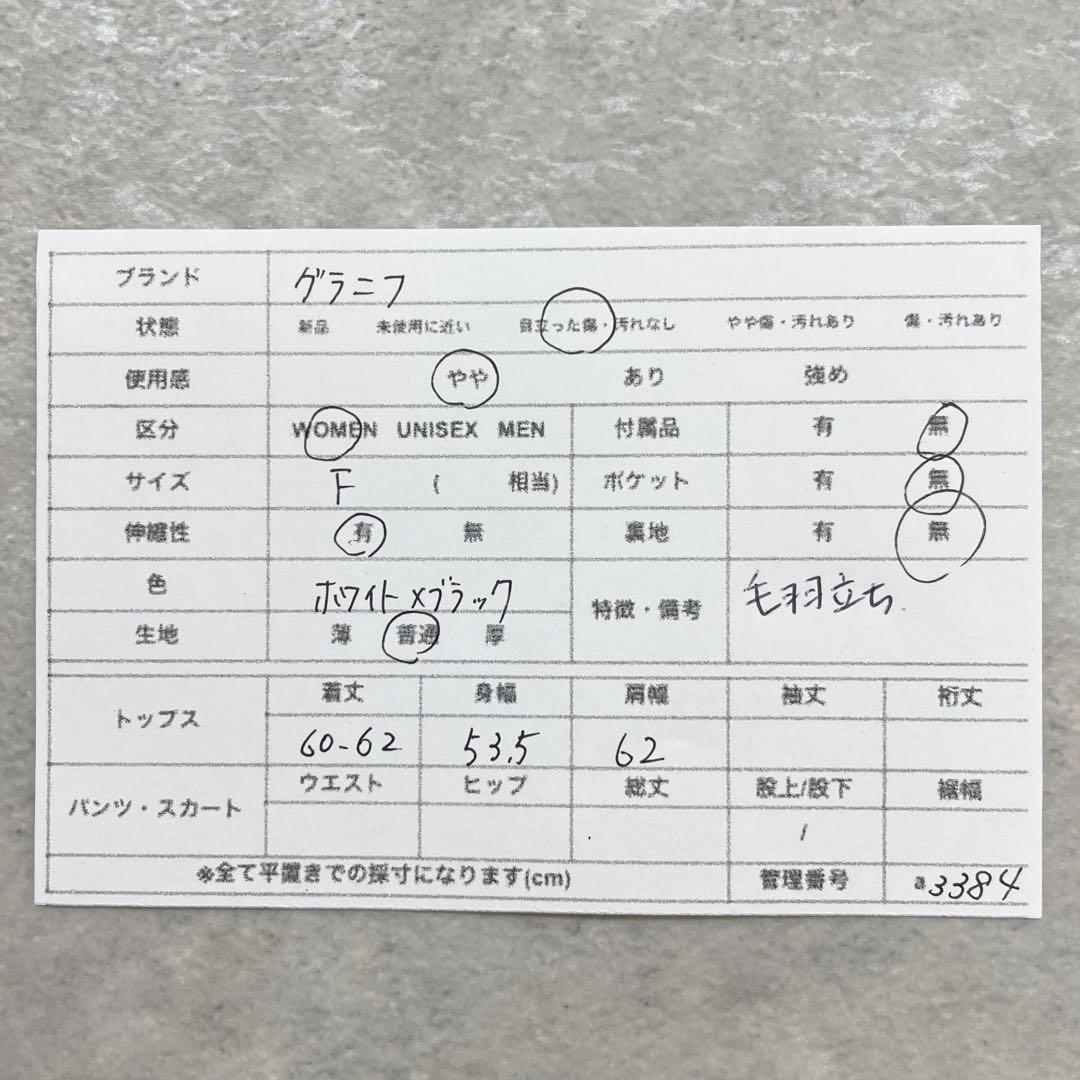 ブランド グラニフ
状態 新品 未使用に近い 目立った傷・汚れなし やや傷・汚れあり 傷・汚れあり
使用感 やや あり 強め
区分 WOMEN UNISEX MEN 付属品 有 無
サイズ F ( 相当) ポケット 有 無
伸縮性 有 無 裏地 有 無
色 ホワイト×ブラック 特徴・備考 毛羽立ち
生地 薄 普通 厚
トップス 着丈 身幅 肩幅 袖丈 裄丈
60-62 53.5 62
パンツ・スカート ウエスト ヒップ 総丈 股上/股下 裾幅
/
※全て平置きでの採寸になります(cm) 管理番号 a3384